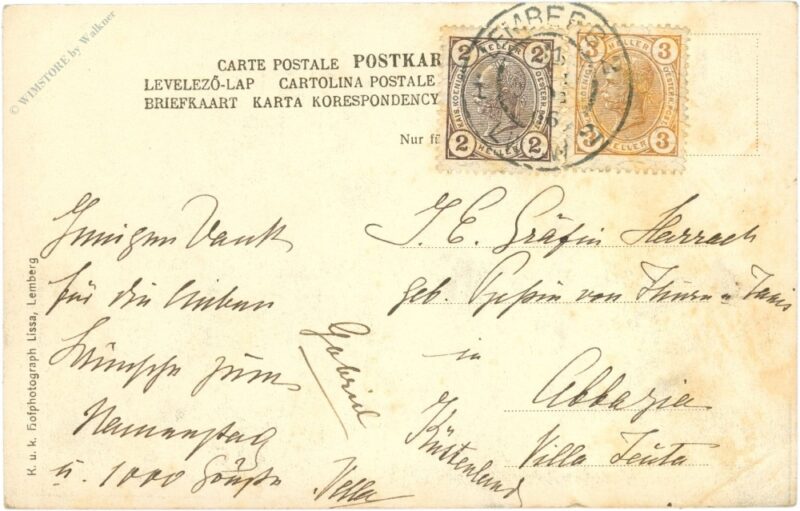 © WIMSTORE by Walkner
CARTE POSTALE POSTKAR
LEVELEZŐ-LAP CARTOLINA POSTALE
BRIEFKAART KARTA KORESPONDENCY
Nur fü
2 HELLER 2
KAIS. KOENIGL. OESTERR.
2 HELLER 2
3 HELLER 3
OESTERR.
3 HELLER 3
LEMBERG
K. u. k. Hofphotograph Lissa, Lemberg
Innigen Dank
für die lieben
Wünsche zum
Namenstag
u. 1000 Grüße
Gabriel
I. E. Gräfin Harrach
geb. von Thurn u Taxis
in
Abbazia
Villa Jeuta
Küstenland